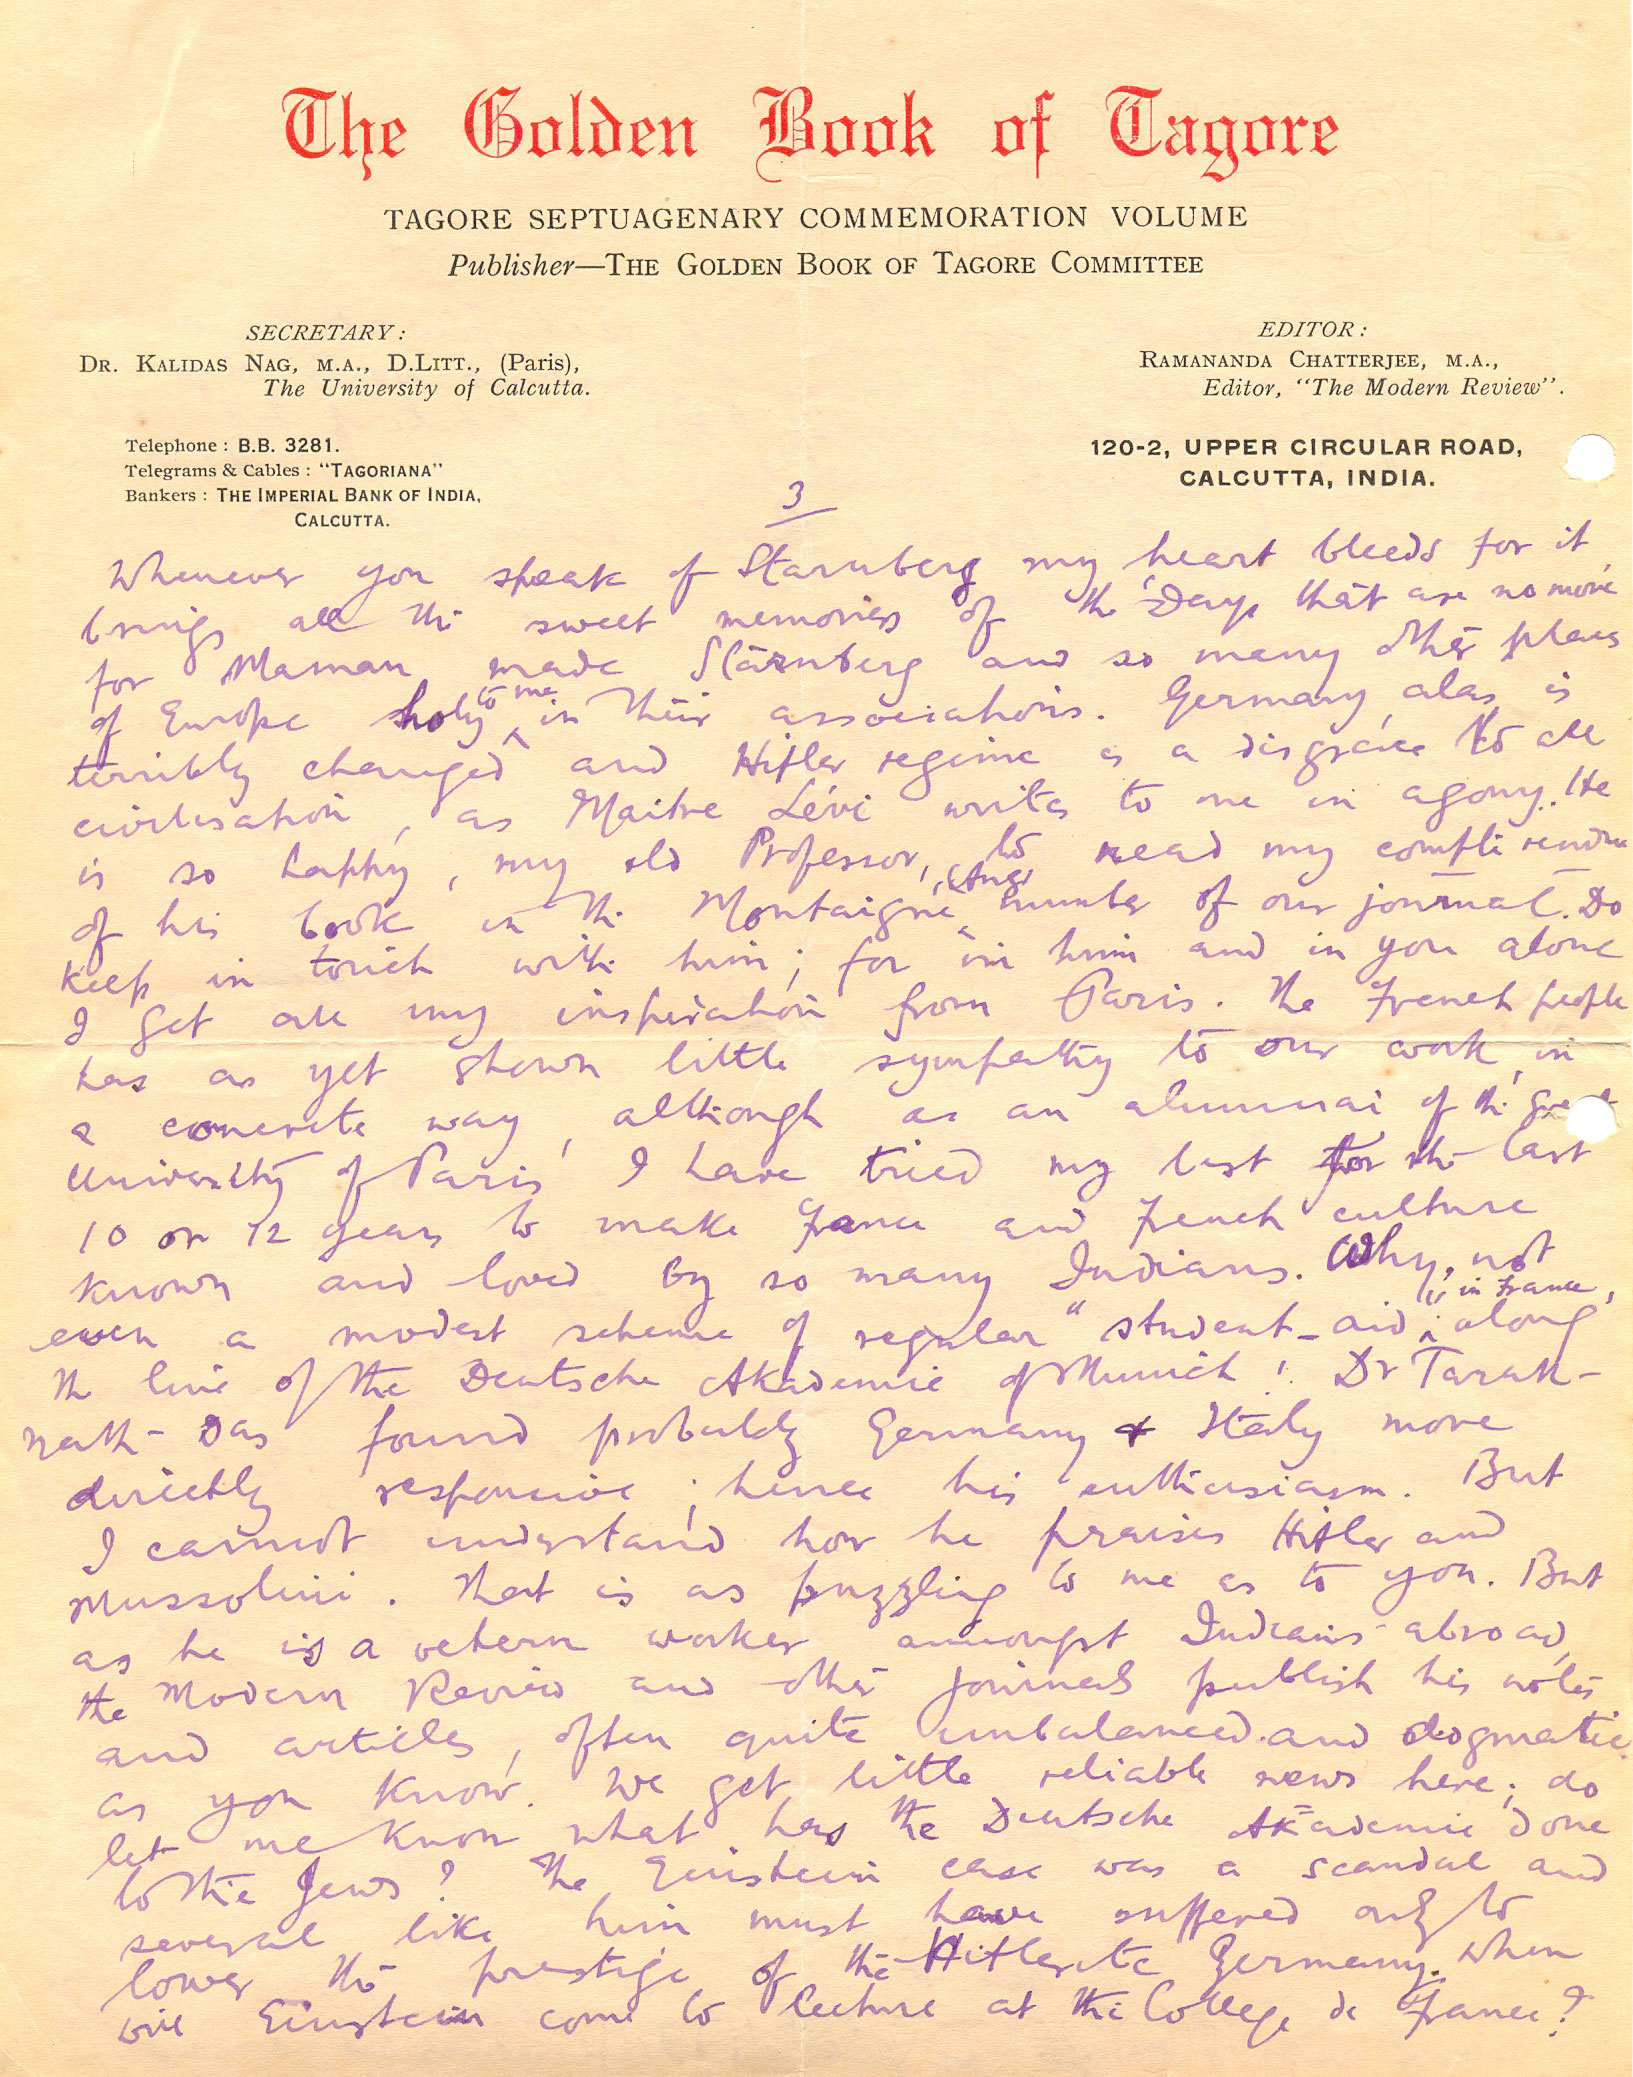 The Golden Book of Tagore
TAGORE SEPTUAGENARY COMMEMORATION VOLUME
Publisher—THE GOLDEN BOOK OF TAGORE COMMITTEE
SECRETARY:
DR. KALIDAS NAG, M.A., D.LITT., (Paris),
The University of Calcutta.
EDITOR:
RAMANANDA CHATTERJEE, M.A.,
Editor, "The Modern Review".
Telephone: B.B. 3281.
Telegrams & Cables: "TAGORIANA"
Bankers: THE IMPERIAL BANK OF INDIA,
CALCUTTA.
120-2, UPPER CIRCULAR ROAD,
CALCUTTA, INDIA.
3
Whenever you speak of Starnberg my heart bleeds for it
brings all the sweet memories of the 'Days that are no more'
for Maman made Starnberg and so many other places
of Europe holy to me in their associations. Germany, alas, is
terribly changed and Hitler regime is a disgrace to all
civilisation, as Maitre Lévi writes to me in agony. He
is so happy, my old Professor, to read my compte rendu
of his book in the Montaigne (Aug) number of our journal. Do
keep in touch with him; for in him and in you alone
I get all my inspiration from Paris. The French people
has as yet shown little sympathy to our work, in
a concrete way, although as an alumnai of the great
University of Paris, I have tried my best for the last
10 or 12 years to make France and French culture
known and loved by so many Indians. Why, not
even a modest scheme of regular "student-aid" in France, along
the line of the Deutsche Akademie of Munich! Dr Tarak-
nath-Das found probably Germany & Italy more
directly responsive; hence his enthusiasm. But
I cannot understand how he praises Hitler and
Mussolini. That is as puzzling to me as to you. But
as he is a vetern worker amongst Indians abroad,
the Modern Review and other journals publish his notes
and articles, often quite unbalanced and dogmatic
as you know. We get little reliable news here; do
let me know what has the Deutsche Akademie done
to the Jews? The Einstein case was a scandal and
several like him must have suffered only to
lower the prestige of the Hitlerite Germany. When
will Einstein come to lecture at the College de France?